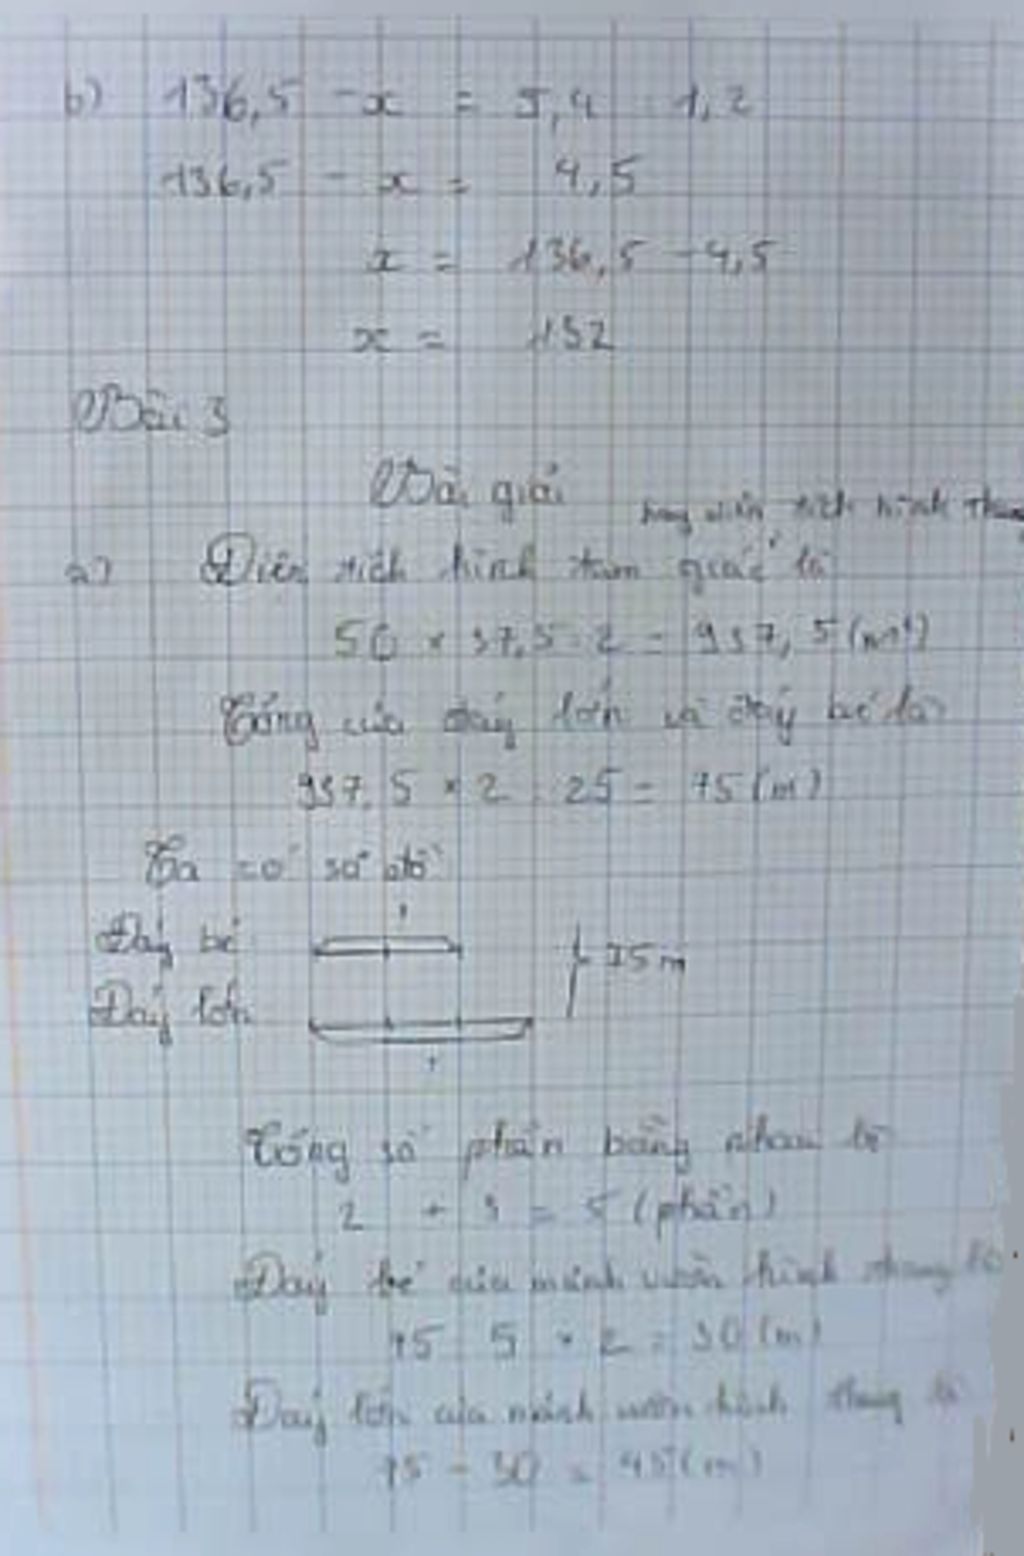 b) 136,5 - x = 5,4 : 1,2
136,5 - x = 4,5
x = 136,5 - 4,5
x = 132
Bài 3
Bài giải
tích hình thang
a) Diện tích hình tam giác là
50 × 37,5 : 2 = 937,5 (m²)
Tổng của đáy lớn và đáy bé là
937,5 × 2 : 25 = 75 (m)
Ta có sơ đồ
Đáy bé
75 m
Đáy lớn
Tổng số phần bằng nhau là
2 + 3 = 5 (phần)
Đáy bé của mảnh vườn hình thang là
75 : 5 × 2 = 30 (m)
Đáy lớn của mảnh vườn hình thang là
75 - 30 = 45 (m)